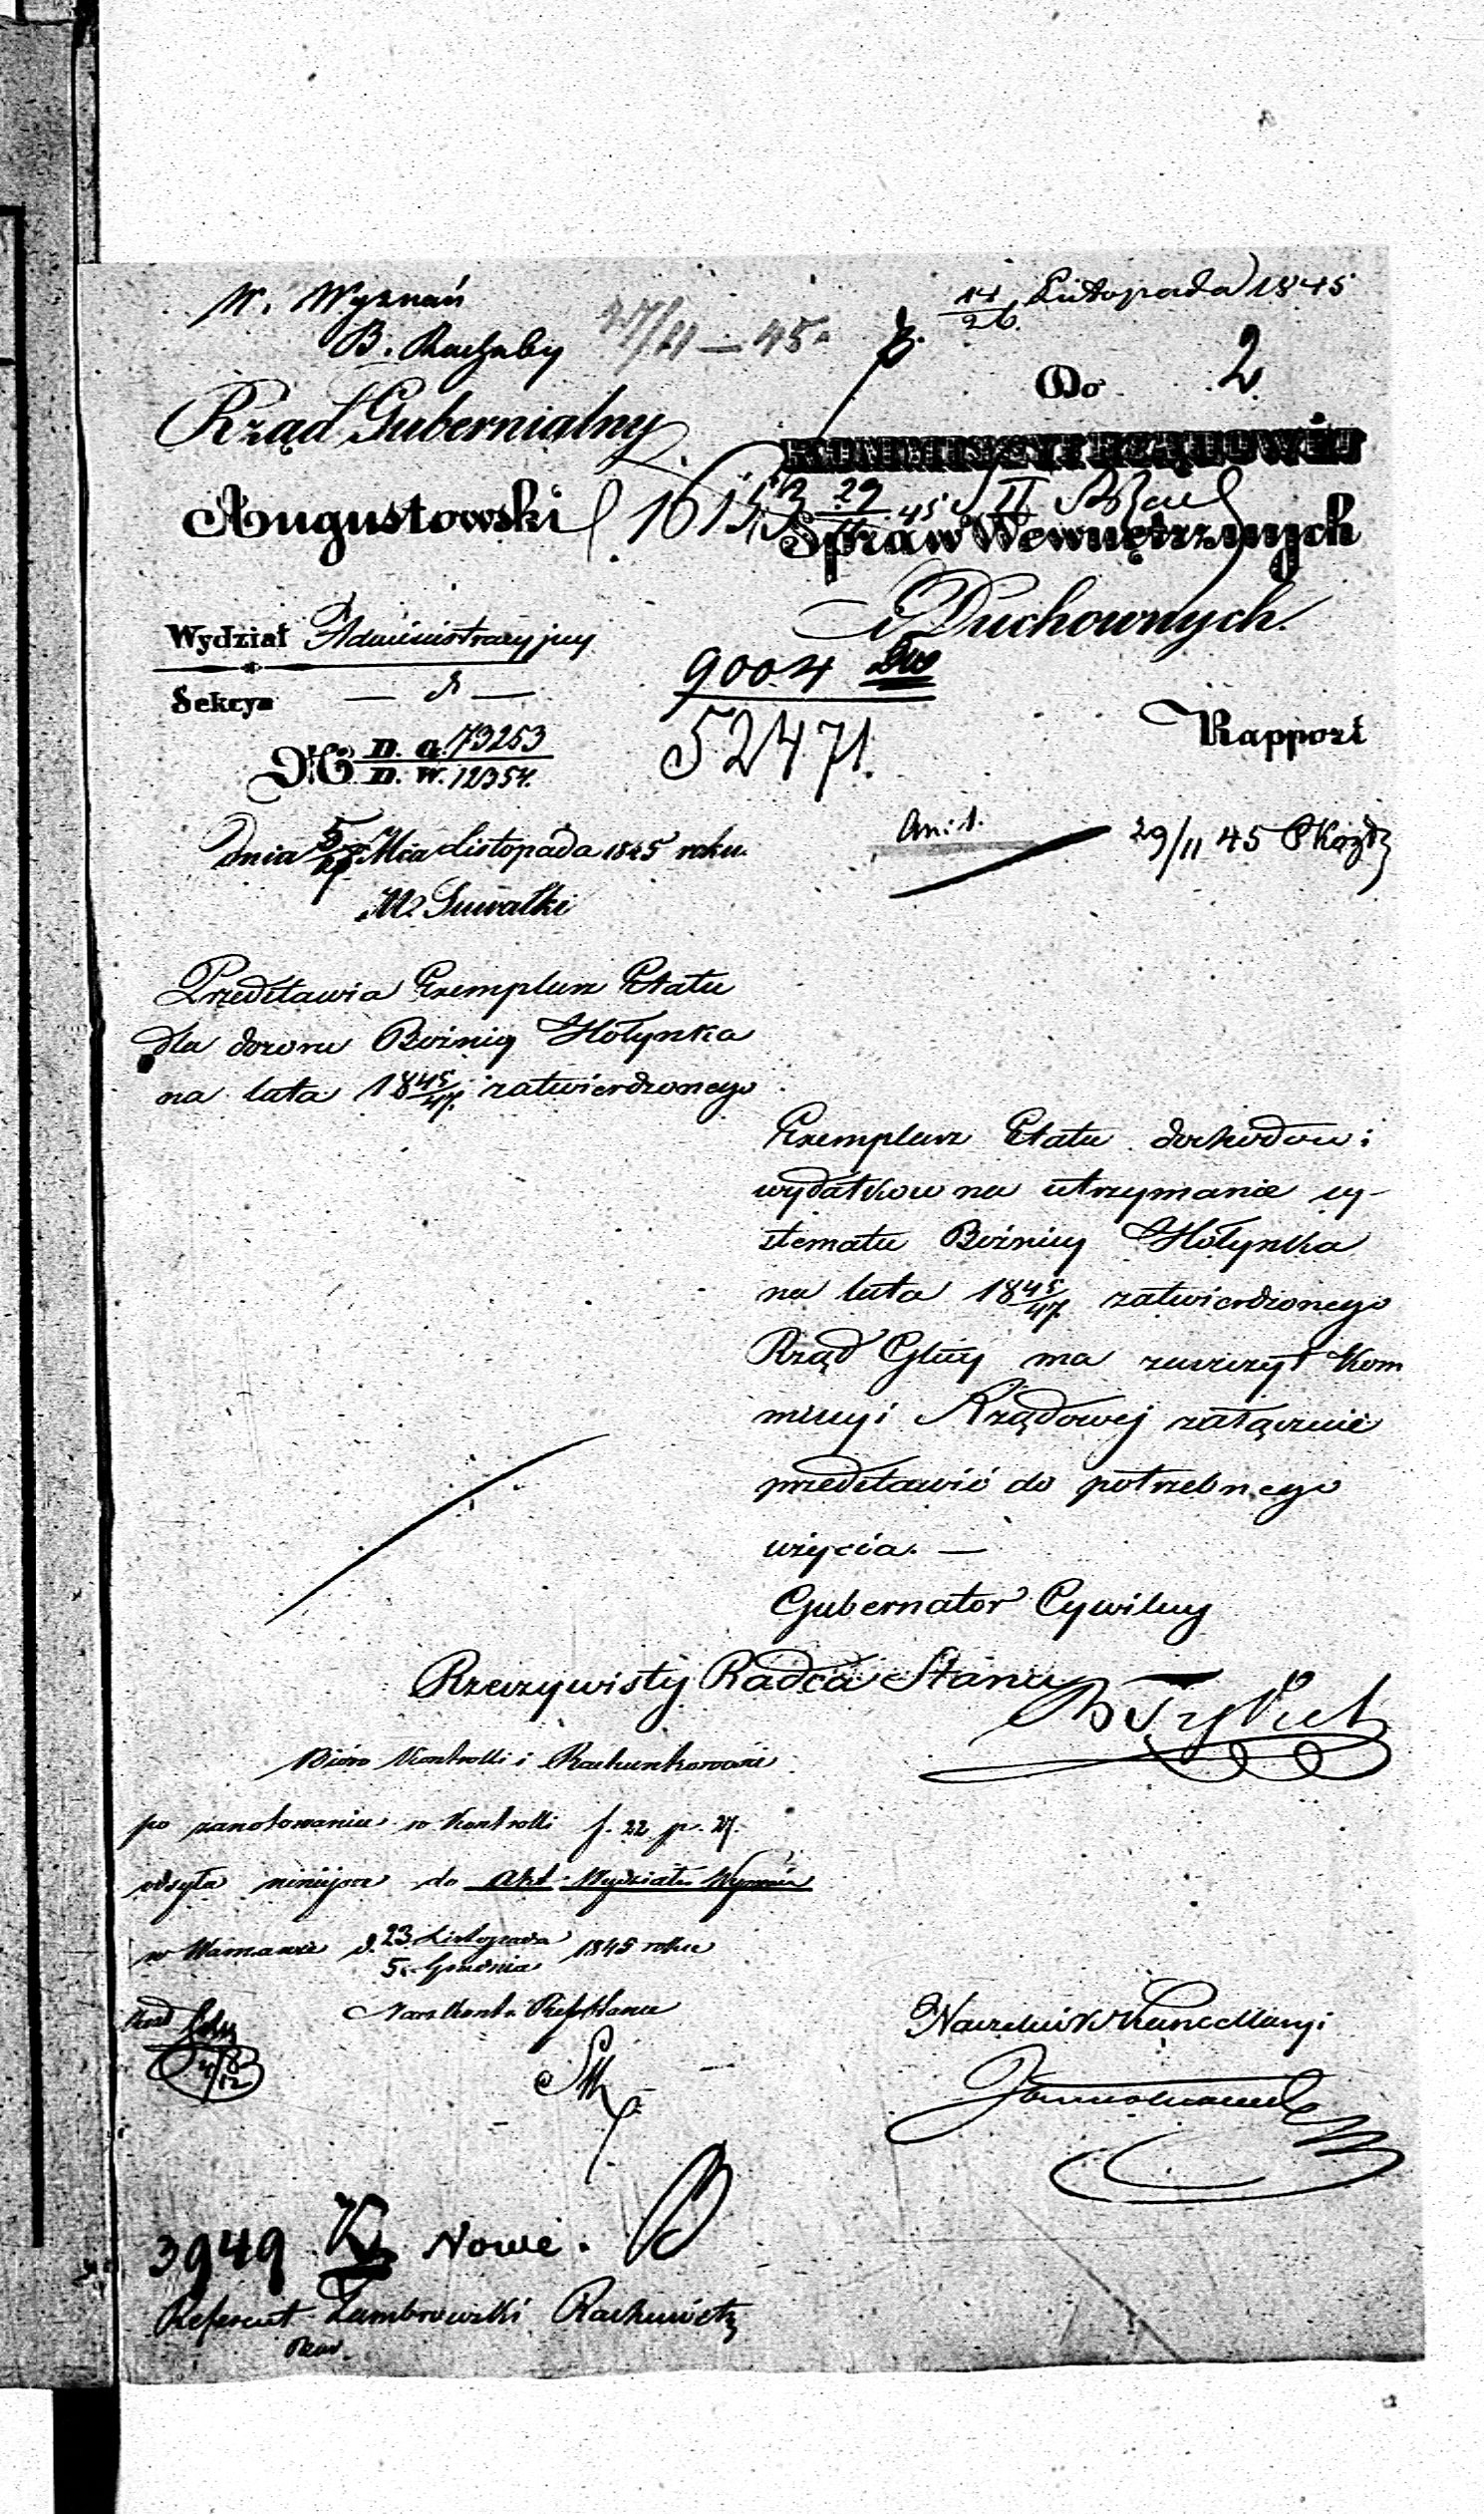 W. Wyznań
B. Rachuby
27/11 — 45.
14/26 Listopada 1845
Do
2
Rząd Gubernialny
Augustowski
KOMMISSYI RZĄDOWÉJ
Spraw Wewnętrznych
i Duchownych.
29/11 45 II
Wydział Administracyjny
Sekcya
9004
52471.
Rapport
№ D. G. 73253
D. W. 12354.
Dnia 5/17 Mca Listopada 1845 roku.
M. Suwałki
Ann. 1.
29/11 45
Przedstawia Exemplarz Etatu
dla dozoru Bóżnicy Hołynka
na lata 1845/47. zatwierdzonego
Exemplarz Etatu dochodów i
wydatków na utrzymanie sy-
stematu Bóżnicy Hołynka
na lata 1845/47. zatwierdzonego
Rząd Glny ma zaszczyt Kom
missyi Rządowej załącznie
przedstawić do potrzebnego
użycia. —
Gubernator Cywilny
Rzeczywisty Radca Stanu
Biuro Kontrolli i Rachunkowości
po zanotowaniu w kontrolli f. 22 p. 27.
odsyła niniejsze do Akt Wydziału Wyznań
w Warszawie d. 23 Listopada / 5 Grudnia 1845 roku
Naczelnik Kancellaryi
4/12
3949 Nowe.
Referent Zambrowski